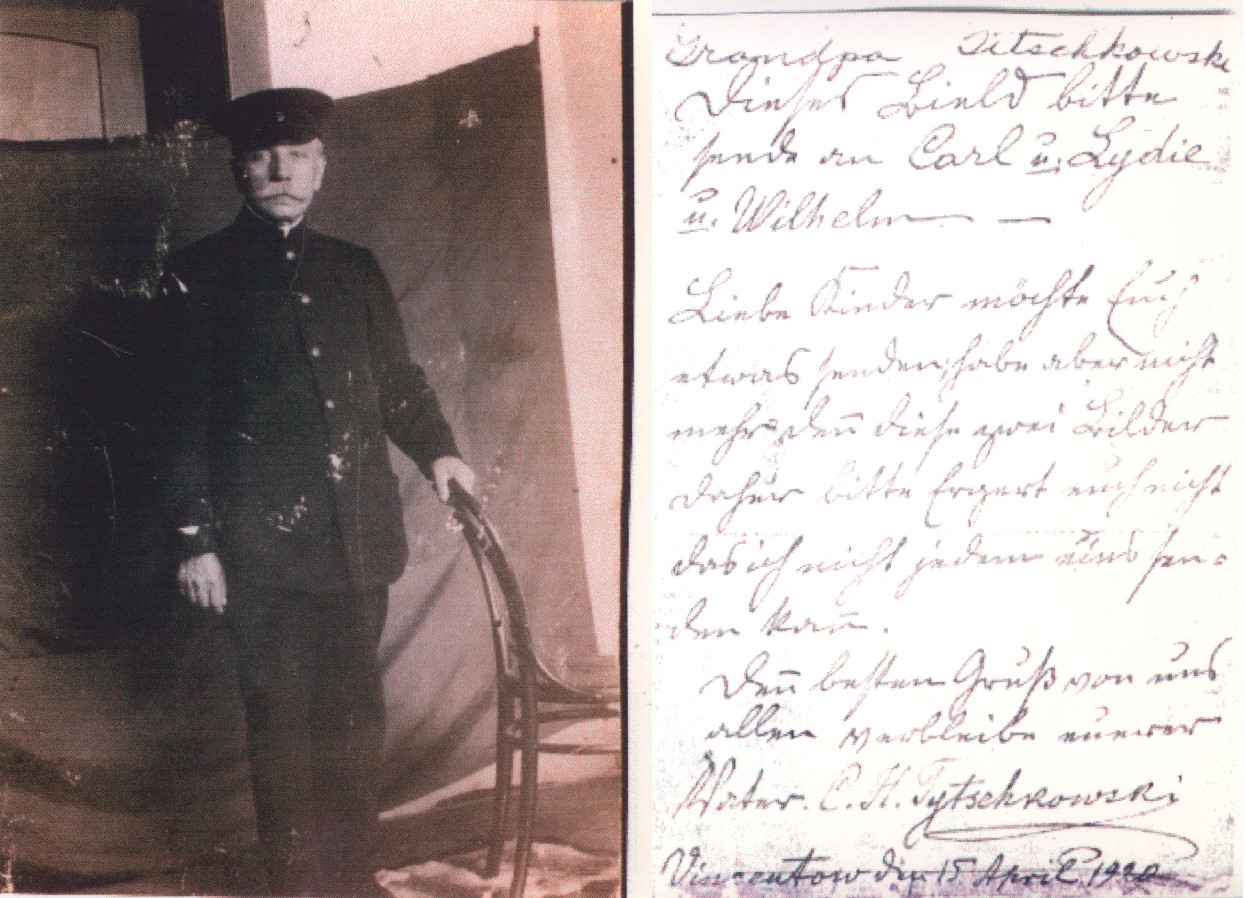 Grandpa Titschkowski
Dieses Bield bitte
sende an Carl u. Lydie
u. Wilhelm — —
Liebe Kinder möchte Euch
etwas senden, habe aber nicht
mehr den̅ diese zwei Bilder
daher bitte Ergert euch nicht
das ich nicht jedem eins sen=
den kan̅.
Den̅ besten Gruß von uns
allen verbleibe euerer
Vater. C. H. Tytschkowski
Vincentow den 15 April 1920